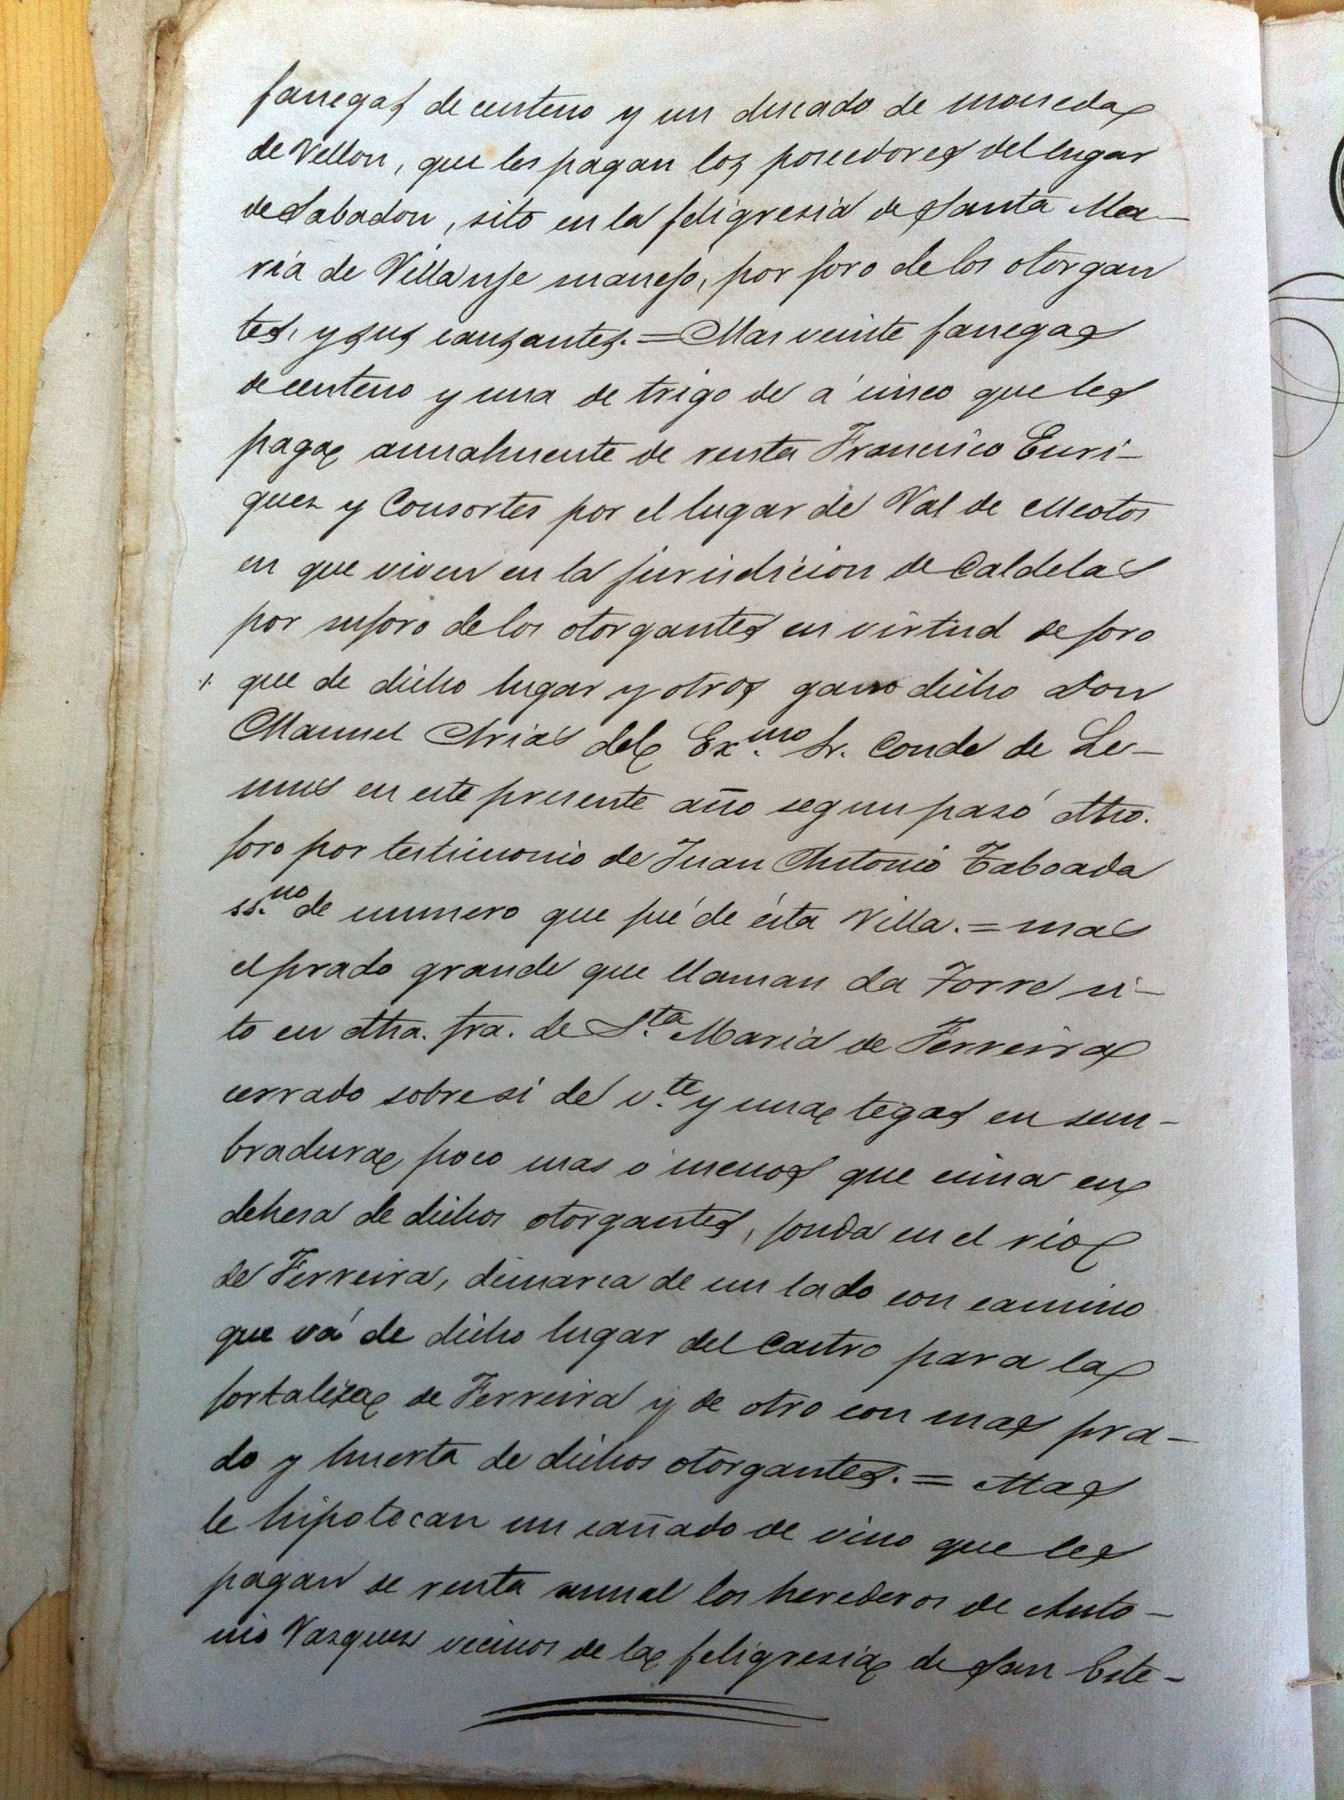 fanegas de centeno y un ducado de moneda
de Vellon, que les pagan los poseedores del lugar
de Sabadon, sito en la feligresia de Santa Ma-
ria de Villanse manejo, por foro de los otorgan
tes, y sus causantes. = Mas veinte fanegas
de centeno y una de trigo de á cinco que les
paga annalmente de renta Francisco Enri-
quez y Consortes por el lugar de Val de Meotos
en que viven en la jurisdicion de Caldelas
por suforo de los otorgantes en virtud de foro
que de dicho lugar y otros gano dicho Don
Manuel Arias del Exmo. Sr. Conde de Le-
mus en este presente año segun pasó dho.
foro por testimonio de Juan Antonio Taboada
ss.no de numero que fué de ésta Villa. = mas
el prado grande que llaman da Torre si-
to en dha. fra. de S.ta Maria de Ferreira
cerrado sobre si de v.te y una tegas en sem-
bradura poco mas ó menos que cima en
dehesa de dichos otorgantes, fonda en el rio
de Ferreira, dimarca de un lado con camino
que vá de dicho lugar del Castro para la
fortaleza de Ferreira y de otro con mas pra-
do y huerta de dichos otorgantes. = Mas
le hipotecan un cañado de vino que les
pagan de renta annal los herederos de Anto-
nio Vazquez vecinos de la feligresia de San Este-